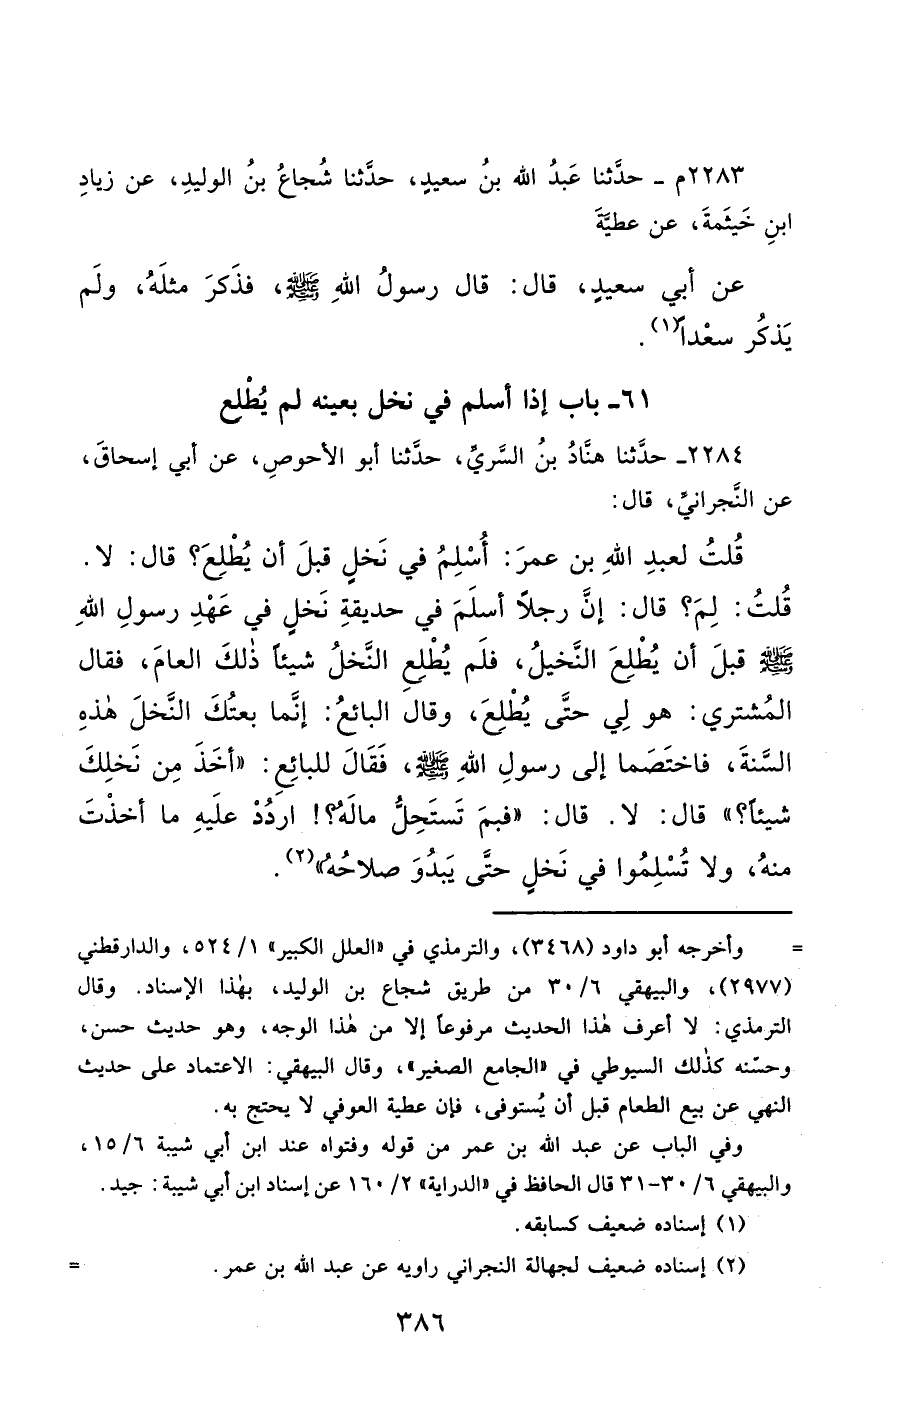 ٢٢٨٣م ـ حدَّثنا عَبدُ الله بنُ سعيدٍ، حدَّثنا شُجاعُ بنُ الوليدِ، عن زيادِ
ابنِ خَيثمةَ، عن عطيَّةَ
عن أبي سعيدٍ، قال: قال رسولُ اللهِ ﷺ، فذَكرَ مثلَهُ، ولَم
يَذكُر سعْداً(١).
٦١ـ باب إذا أسلم في نخل بعينه لم يُطْلِع
٢٢٨٤ـ حدَّثنا هنَّادُ بنُ السَّريِّ، حدَّثنا أبو الأحوصِ، عن أبي إسحاقَ،
عن النَّجرانيِّ، قال:
قُلتُ لعبدِ اللهِ بن عمرَ: أُسْلِمُ في نَخلٍ قبلَ أن يُطْلِعَ؟ قال: لا.
قُلتُ: لِمَ؟ قال: إنَّ رجلاً أسلَمَ في حديقةِ نَخلٍ في عَهْدِ رسولِ اللهِ
ﷺ قبلَ أن يُطْلِعَ النَّخيلُ، فلَم يُطْلِعِ النَّخلُ شيئاً ذٰلكَ العامَ، فقال
المُشتري: هو لِي حتَّى يُطْلِعَ، وقال البائعُ: إنَّما بعتُكَ النَّخلَ هٰذهِ
السَّنةَ، فاختَصَما إلى رسولِ اللهِ ﷺ، فَقَالَ للبائِعِ: «أخَذَ مِن نَخلِكَ
شيئاً؟» قال: لا. قال: «فبمَ تَستَحِلُّ مالَهُ؟! اردُدْ علَيهِ ما أخذْتَ
منهُ، ولا تُسْلِمُوا في نَخلٍ حتَّى يَبدُوَ صلاحُهُ»(٢).
= وأخرجه أبو داود (٣٤٦٨)، والترمذي في «العلل الكبير» ١/ ٥٢٤، والدارقطني
(٢٩٧٧)، والبيهقي ٦/ ٣٠ من طريق شجاع بن الوليد، بهٰذا الإسناد. وقال
الترمذي: لا أعرف هٰذا الحديث مرفوعاً إلا من هٰذا الوجه، وهو حديث حسن،
وحسّنه كذٰلك السيوطي في «الجامع الصغير»، وقال البيهقي: الاعتماد على حديث
النهي عن بيع الطعام قبل أن يُستوفى، فإن عطية العوفي لا يحتج به.
وفي الباب عن عبد الله بن عمر من قوله وفتواه عند ابن أبي شيبة ٦/ ١٥،
والبيهقي ٦/ ٣٠-٣١ قال الحافظ في «الدراية» ٢/ ١٦٠ عن إسناد ابن أبي شيبة: جيد.
(١) إسناده ضعيف كسابقه.
(٢) إسناده ضعيف لجهالة النجراني راويه عن عبد الله بن عمر. =
٣٨٦